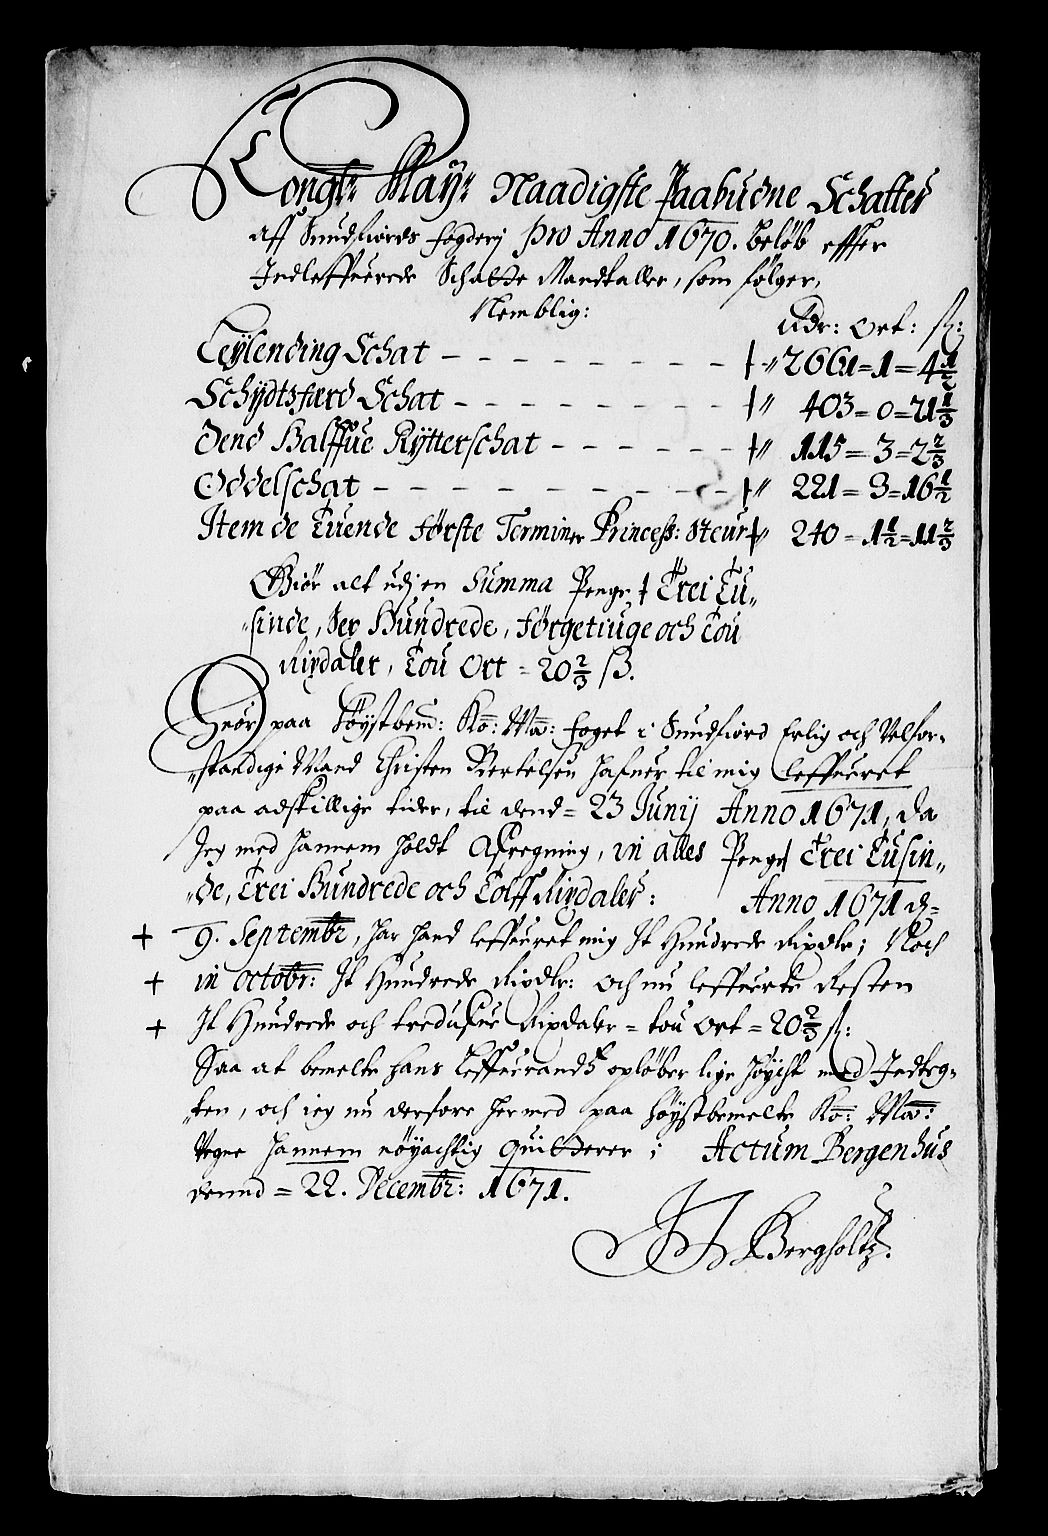 Kongl: May: Naadigste Paabudne Schatter
aff Sundfiords fogderj pro Anno 1670. beløb effter
Indleffuerede Schatte Mandtaller, som følger,
Nemblig:
Rdr: Ort: ß:
Leylending Schat – – – – – – – – 2661 = 1 = 4 1/2
Schydtzferd Schat – – – – – – – 403 = 0 = 21 1/3
Dend Halffue Rytterschat – – – – – 115 = 3 = 2 2/3
Oddelschat – – – – – – – – – 221 = 3 = 16 1/2
Item de Tuende første Terminer Princess: Steur 240 = 1 1/2 = 11 2/3
Giør alt udj en Summa Penge Trei Tu„
„sinde, Sex Hundrede, førgetiuge och Tou
Rixdaler, Tou Ort = 20 2/3 ß.
Huor paa Høystbemd: Ko: Ma: foget i Sundfiord Erlig och Velfor„
„standige Mand Christen Bertelsen hafuer til mig leffueret
paa adskillige tider, til dend = 23 Junij Anno 1671, da
Jeg med hannem holdt Afregning, in alles Penge Trei Tusin„
„de, Trei Hundrede och Tolff Rixdaler: Anno 1671 d=
+ 9. Septembr, har hand leffueret mig It Hundrede Rixdlr; Noch
+ in octobr: It Hundrede Rixdlr: och nu leffuerte Resten
+ It Hundrede och tredifue Rixdaler = tou Ort = 20 2/3 ß:
Saa at bemelte hans Leffuerandtz opløber lige høyt med Indteg„
„ten, och ieg nu derfore hermed paa høystbemelte Ko: Ma:
Vegne hannem nøyachtig quitterer; Actum Bergenhus
dennd = 22. Decembr: 1671.
Bergholtz.